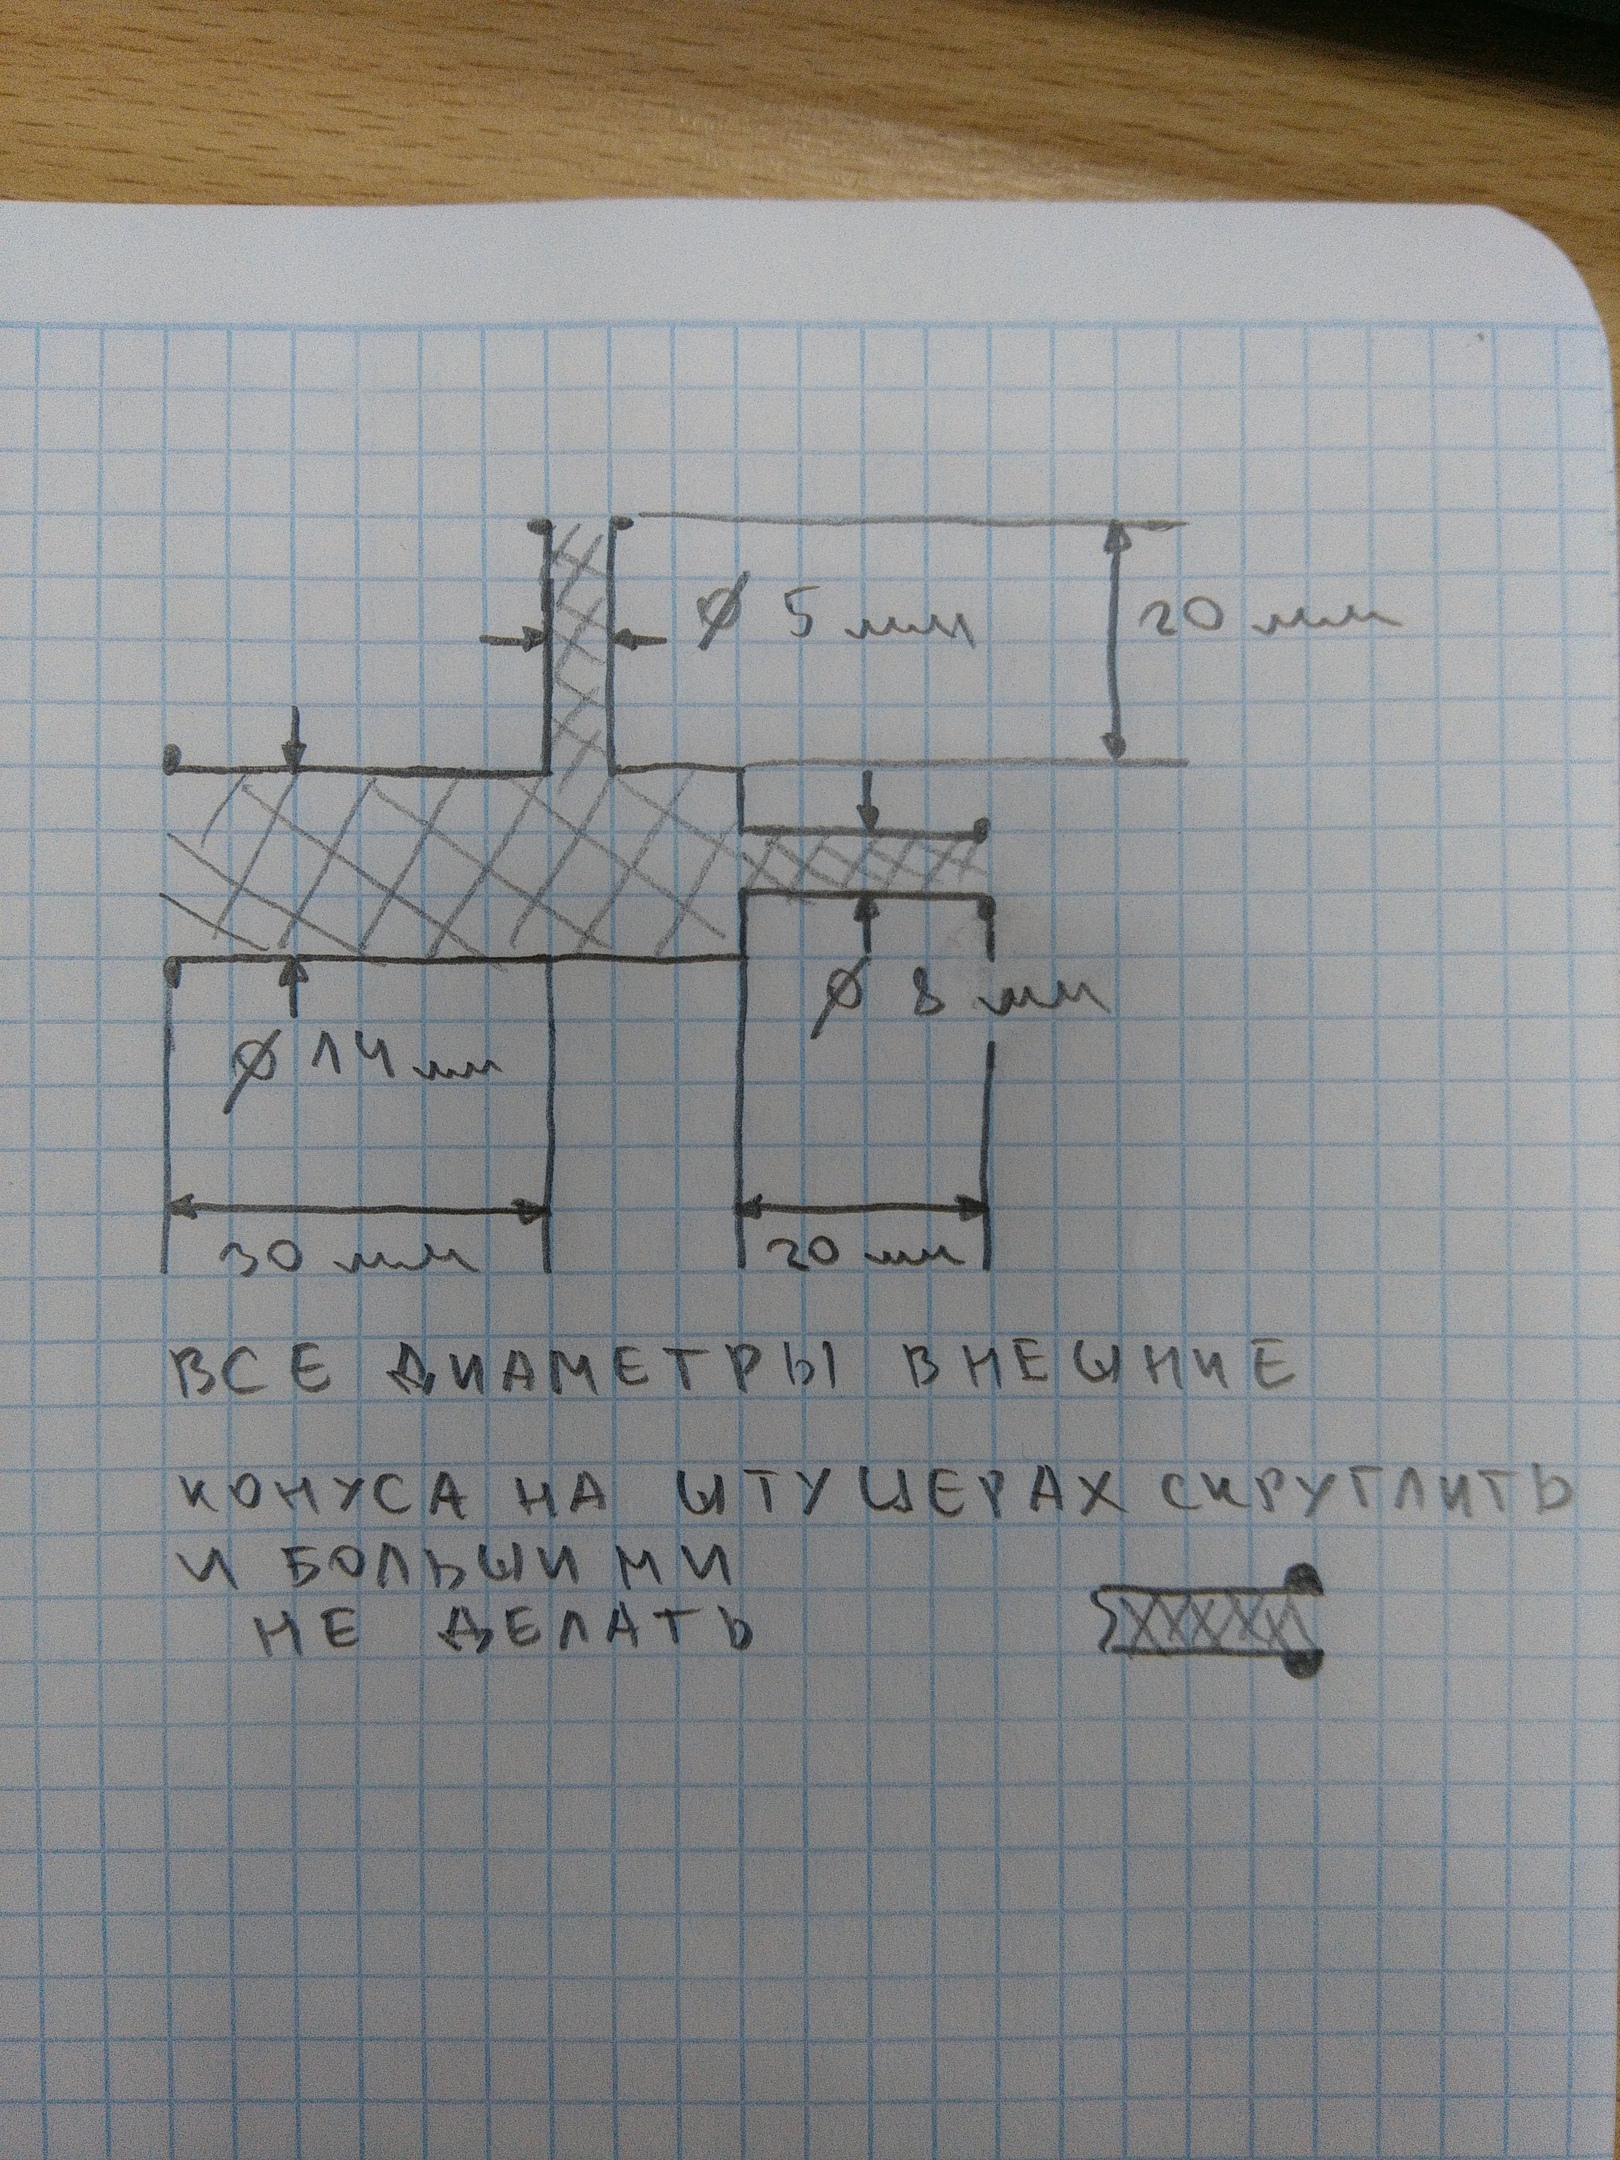 Ø 5 мм
20 мм
Ø 8 мм
Ø 14 мм
30 мм
20 мм
ВСЕ ДИАМЕТРЫ ВНЕШНИЕ
КОНУСА НА ШТУЦЕРАХ СКРУГЛИТЬ
И БОЛЬШИМИ
НЕ ДЕЛАТЬ